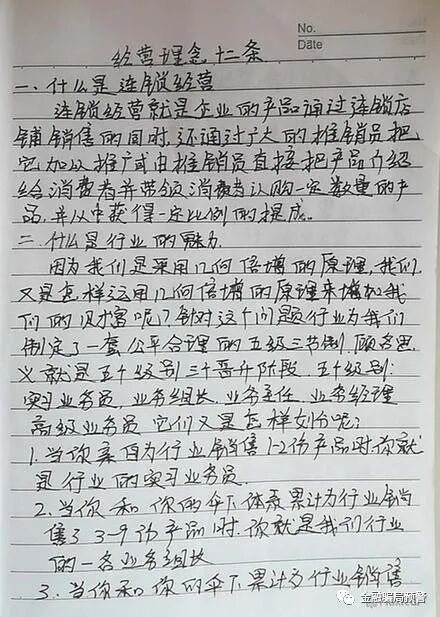 No.
Date
经营理念十二条
一、什么是连锁经营
连锁经营就是企业的产品通过连锁店
铺销售的同时,还通过广大的推销员把
它加以推广或由推销员直接把产品介绍
给消费者并带领消费者认购一定数量的产
品,并从中获得一定比例的提成。
二.什么是行业的魅力
因为我们是采用几何倍增的原理,我们
又是怎样运用几何倍增的原理来增加我
们的财富呢?针对这个问题行业为我们
制定了一套公平合理的五级三节制,顾名思
义就是五个级别三个晋升阶段,五个级别:
实习业务员,业务组长,业务主任,业务经理
高级业务员 它们又是怎样划分呢;
1.当你亲自为行业销售1-2份产品时,你就
是行业的实习业务员.
2.当你和你的伞下体系累计为行业销
售了3-9份产品时.你就是我们行业
的一名业务组长
3.当你和你的伞下累计为行业销售
金融骗局预警